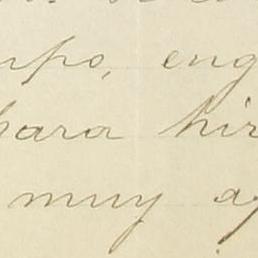 upo, eng
para hir
muy a